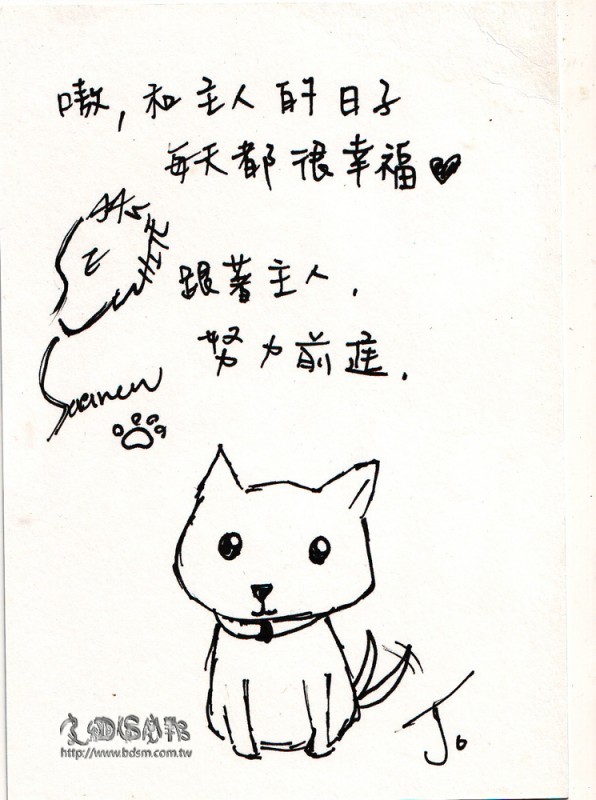 嗷,和主人的日子
每天都很幸福
跟著主人,
努力前進.
http://www.bdsm.com.tw